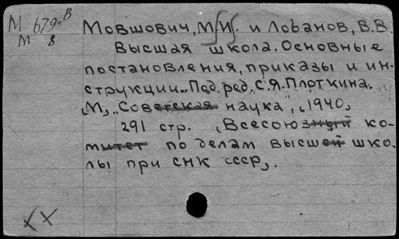 М 679-В
М 8
Мовшович, М.М. и Лобанов, В.В.
Высшая школа. Основные
постановления, приказы и ин-
струкции. Под. ред. С.Я. Плоткина.
М., "Советская наука", 1940,
291 стр. (Всесоюзный ко-
митет по делам высшей шко-
лы при СНК СССР).
XX